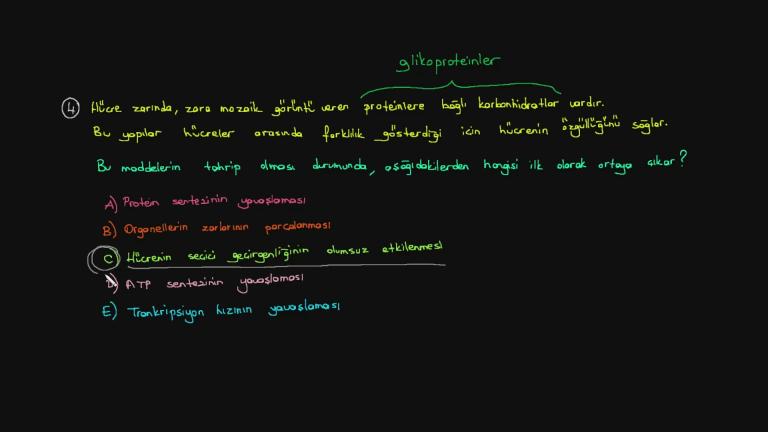 glikoproteinler
4 Hücre zarında, zara mozaik görüntü veren proteinlere bağlı karbonhidratlar vardır.
Bu yapılar hücreler arasında farklılık gösterdiği için hücrenin "özgüllüğünü" sağlar.
Bu maddelerin tahrip olması durumunda, aşağıdakilerden hangisi ilk olarak ortaya çıkar?
A) Protein sentezinin yavaşlaması
B) Organellerin zarlarının parçalanması
C) Hücrenin seçici geçirgenliğinin olumsuz etkilenmesi
D) ATP sentezinin yavaşlaması
E) Trankripsiyon hızının yavaşlaması